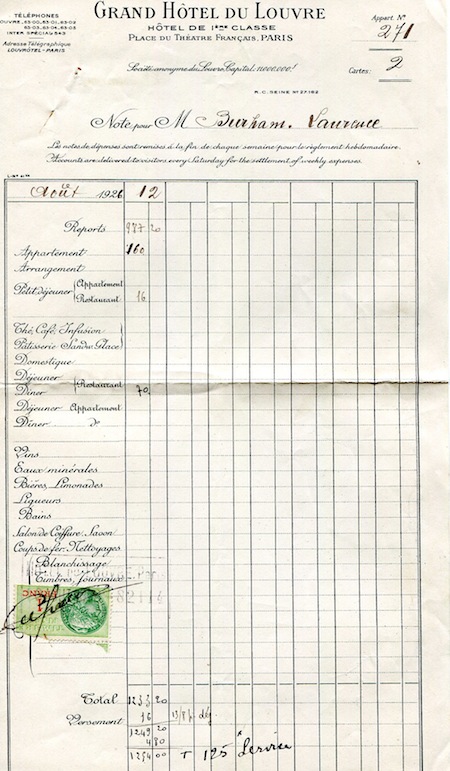 GRAND HÔTEL DU LOUVRE
HÔTEL DE 1ÈRE CLASSE
PLACE DU THÉATRE FRANÇAIS, PARIS
TÉLÉPHONES
INTER SPÉCIAL 543
Adresse Télégraphique
LOUVROTEL-PARIS
Appart. No
271
Société anonyme du Louvre, Capital:
Cartes: 2
R.C. SEINE No 27.182
Note pour M Burham. Laurence
Les notes de dépenses sont remises à la fin de chaque semaine pour le règlement hebdomadaire.
Accounts are delivered to visitors every Saturday for the settlement of weekly expenses.
Août 1926 12
Reports 987 20
Appartement 160
Arrangement
Petit déjeuner { Appartement
Restaurant 16
Thé, Café, Infusion
Pâtisserie Sandw. Glace
Domestique
Déjeuner
Dîner } Restaurant 70
Déjeuner Appartement
Dîner do
Vins
Eaux minérales
Bières, Limonades
Liqueurs
Bains
Salon de Coiffure. Savon
Coups de fer. Nettoyages
Blanchissage
Timbres, Journaux
FRANC
Total 1233 20
Versement 16 13/8 p. déj
1249 20
4 80
1254 00 + 125 Service